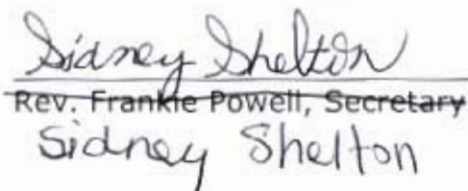 Sidney Shelton
Rev. Frankie Powell, Secretary
Sidney Shelton